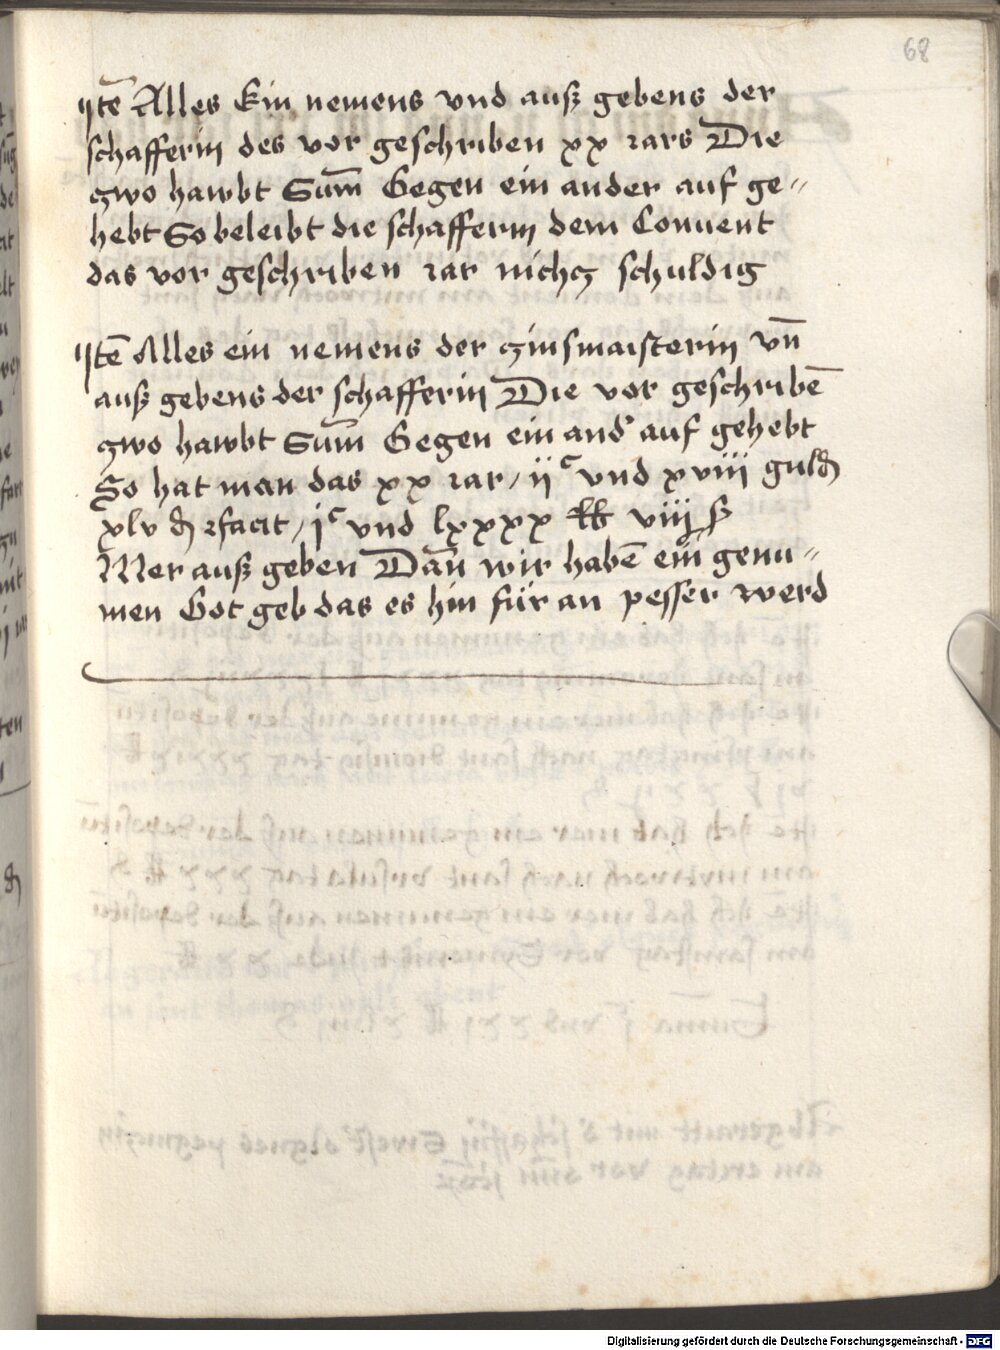 68
Itē Alles Ein nemens vnd auß gebens der
schafferin des vor geschriben xx iars Die
zwo hawbt Sum̄ Gegen ein ander auf ge〃
hebt So beleibt die schafferin dem Conuent
das vor geschriben iar nichcz schuldig
Itē Alles ein nemens der zinsmaisterin vn̄
auß gebens der schafferin Die vor geschribē
zwo hawbt Sum̄ Gegen ein and' auf gehebt
So hat man das xx iar / ijᶜ vnd xviii guld
xlv ₰ facit / jᶜ vnd lxxxx ℔ viij ß
Mer auß geben Dan̄ wir habē ein genu〃
men Got geb das es hin für an pesser werd
Digitalisierung gefördert durch die Deutsche Forschungsgemeinschaft - DFG